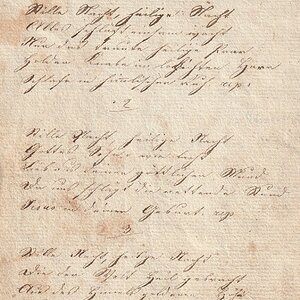 Stille Nacht heilige Nacht
Alles schläft einsam wacht
Nur das traute heilige Paar
Holder Knabe im lockigten Haar
Schlafe in himlischer Ruh
2
Stille Nacht heilige Nacht
Gottes Sohn wie lacht
Lieb aus deinen göttlichen Mund
Da uns schlagt die rettende Stund
Jesus in deiner Geburt
3
Stille Nacht heilge Nacht
Die der Welt Heil gebracht
Aus des Himels goldenen